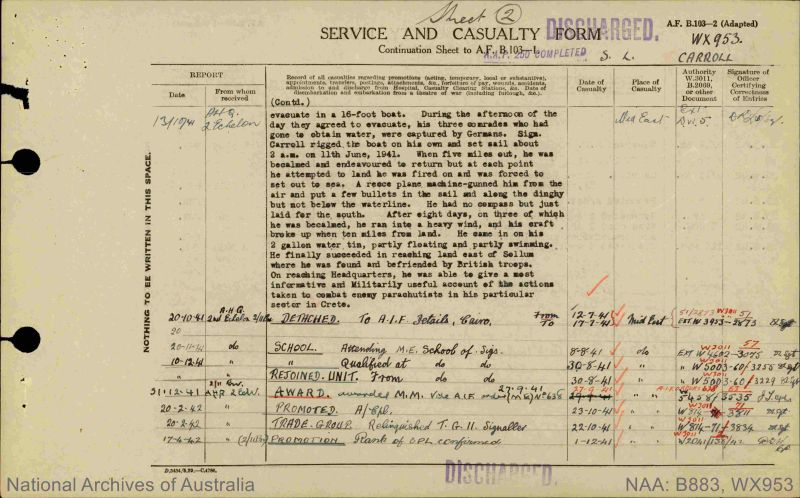 Sheet 2
DISCHARGED.
A.F. B.103—2 (Adapted)
SERVICE AND CASUALTY FORM
WX953.
Continuation Sheet to A.F. B.103—1.
COMPLETED
S. L.
CARROLL
REPORT
Date
From whom received
Record of all casualties regarding promotions (acting, temporary, local or substantive), appointments, transfers, postings, attachments, &c., forfeiture of pay, wounds, accidents, admission to and discharge from Hospital, Casualty Clearing Stations, &c. Date of disembarkation and embarkation from a theatre of war (including furlough, &c.).
Date of Casualty
Place of Casualty
Authority W.3011, B.2069, or other Document
Signature of Officer Certifying Correctness of Entries
NOTHING TO BE WRITTEN IN THIS SPACE.
(Contd.)
2 Echelon
Mid East
evacuate in a 16-foot boat. During the afternoon of the
day they agreed to evacuate, his three comrades who had
gone to obtain water, were captured by Germans. Sigm.
Carroll rigged the boat on his own and set sail about
2 a.m. on 11th June, 1941. When five miles out, he was
becalmed and endeavoured to return but at each point
he attempted to land he was fired on and was forced to
set out to sea. A recce plane machine-gunned him from the
air and put a few bullets in the sail and along the dinghy
but not below the waterline. He had no compass but just
laid for the south. After eight days, on three of which
he was becalmed, he ran into a heavy wind, and his craft
broke up when ten miles from land. He came in on his
2 gallon water tin, partly floating and partly swimming.
He finally succeeded in reaching land east of Sollum
where he was found and befriended by British troops.
On reaching Headquarters, he was able to give a most
informative and Militarily useful account of the actions
taken to combat enemy parachutists in his particular
sector in Crete.
20-10-41 A.H.Q. 2nd Echelon DETACHED. To A.I.F Details, Cairo. From 12-7-41 Mid East
20 To 17-7-41 W3953-2873
20-11-41 do SCHOOL. Attending M.E. School of Sigs. 8-8-41 do W4602-3075
10-12-41 " " Qualified at do do 30-8-41 " W5003-60/3255
" " REJOINED UNIT. From do do 30-8-41 " W5003-60/3229
31-12-41 AWARD. awarded M.M. Vide A.I.F. 27.9.41 27-9-41 " 5458/3535
20-2-42 " PROMOTED. A/Cpl. 23-10-41 " 71
20-2-42 " TRADE-GROUP Relinquished T.G. II. Signaller 22-10-41 " 71/3834
17-4-42 " PROMOTION Rank of CPL confirmed 1-12-41 "
DISCHARGED
National Archives of Australia
NAA: B883, WX953